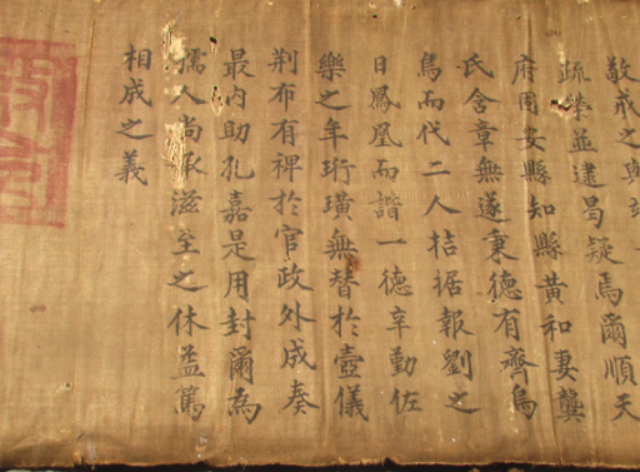 敬戒之與
疏榮並逮曷疑焉爾順天
府固安縣知縣黄和妻龔
氏含章無遂秉德有齊烏
烏而代二人拮据報劉之
日鳳凰而諧一德辛勤佐
樂之年珩璜無替於壼儀
荆布有裨於官政外成奏
最內助孔嘉是用封爾為
孺人尚承滋至之休益篤
相成之義